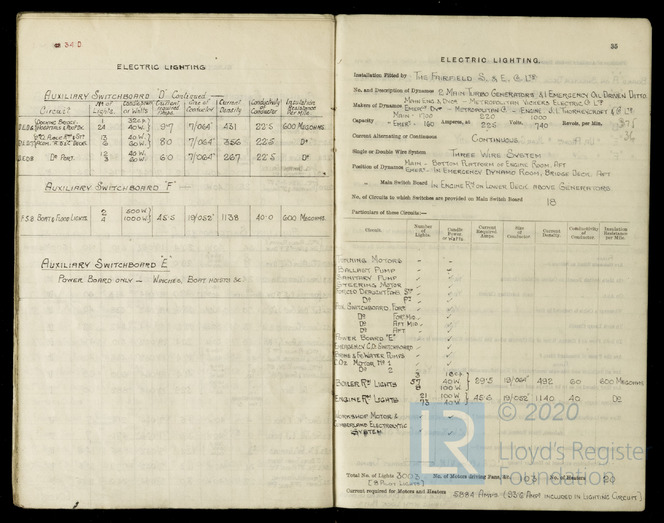 34D
ELECTRIC LIGHTING
AUXILIARY SWITCHBOARD "D" Continued
Circuit Nº of Lights. Candlepower or Watts Current required Amps. Size of Conductor Current Density Conductivity of Conductor Insulation Resistance Per Mile.
32 c.p.
24 40W. 9·7 7/·064" 431 22·5 600 MEGOHMS
40W. 8·0 7/·064" 356 22·5 Dº
Dº PORT. 40W. 6·0 7/·064" 267 22·5 Dº
AUXILIARY SWITCHBOARD "F"
FSB BOAT & FLOOD LIGHTS 2 500W
4 1000W 45·5 19/·052" 1138 40·0 600 MEGOHMS
AUXILIARY SWITCHBOARD "E"
POWER BOARD ONLY — WINCHES, BOAT HOISTS &c
35
ELECTRIC LIGHTING.
Installation Fitted by THE FAIRFIELD S. & E. Co Ltd
No. and Description of Dynamos 2 MAIN TURBO GENERATORS & 1 EMERGENCY OIL DRIVEN DITTO
Makers of Dynamos MAIN ENG. & DYNº - METROPOLITAN VICKERS ELECTRIC Co Ltd
EMERCY DYº - METROPOLITAN Co - ENGINE J. I. THORNEYCROFT & Co Ltd
Capacity MAIN - 1700 Amperes, at 220 Volts, 1000 Revols. per Min.
EMERCY - 160 225 740
Current Alternating or Continuous CONTINUOUS
Single or Double Wire System THREE WIRE SYSTEM
Position of Dynamos MAIN - BOTTOM PLATFORM OF ENGINE ROOM, AFT
EMERCY - IN EMERGENCY DYNAMO ROOM, BRIDGE DECK AFT
" Main Switch Board IN ENGINE RM ON LOWER DECK ABOVE GENERATORS
No. of Circuits to which Switches are provided on Main Switch Board 18
Particulars of these Circuits:—
Circuit. Number of Lights. Candle Power or Watts. Current Required Amps. Size of Conductor. Current Density. Conductivity of Conductor. Insulation Resistance per Mile.
TURNING MOTORS
BALLAST PUMP
SANITARY PUMP
STEERING MOTOR
FORCED DRAUGHT FANS STD
Dº PT
FOR. SWITCHBOARD, FORD
Dº FORD MID.
Dº AFT MID.
Dº AFT
POWER BOARD "E"
EMERGENCY C.D. SWITCHBOARD
ENGINE & FE WATER PUMPS
CO2 MOTOR Nº 1
Dº 2
BOILER RM LIGHTS 57 40W 29·5 19/·064" 492 60 600 MEGOHMS
100W
ENGINE RM LIGHTS 21 100W 45·6 19/·052" 1140 40 Dº
73 40W
WORKSHOP MOTOR &
CUMBERLAND ELECTROLYTIC
SYSTEM
Total No. of Lights 3003 No. of Motors driving Fans, &c. 103 No. of Heaters 20
(8 PILOT LIGHTS)
Current required for Motors and Heaters 5884 AMPS (93·6 AMPS INCLUDED IN LIGHTING CIRCUIT)
LR © 2020
Lloyd's Register
Foundation